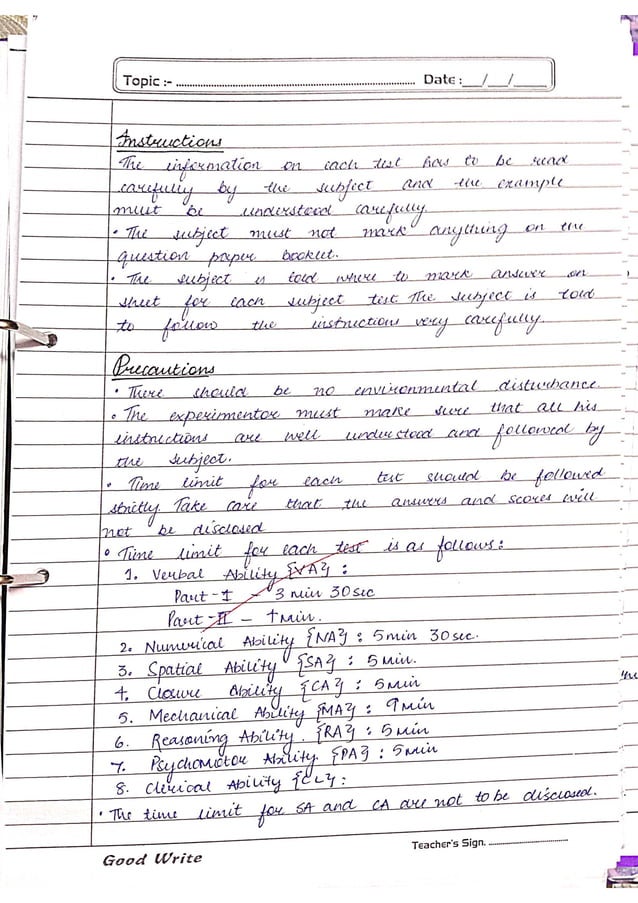 Topic :- Date : __/__/____
Instructions
The information on each test has to be read
carefully by the subject and the example
must be understood carefully.
• The subject must not mark anything on the
question paper booklet.
• The subject is told where to mark answer on
sheet for each subject test. The subject is told
to follow the instructions very carefully.
Precautions
• There should be no environmental disturbance.
• The experimentor must make sure that all his
instructions are well understood and followed by
the subject.
• Time limit for each test should be followed
strictly. Take care that the answers and scores will
not be disclosed
• Time limit for each test is as follows:
1. Verbal Ability {VA} :
Part-I - 3 min 30 sec
Part-II - 1 min.
2. Numerical Ability {NA} : 5 min 30 sec.
3. Spatial Ability {SA} : 5 min.
4. Closure Ability {CA} : 5 min
5. Mechanical Ability {MA} : 9 min
6. Reasoning Ability. {RA} : 5 min
7. Psychomotor Ability. {PA} : 5 min
8. Clerical Ability {CL} :
• The time limit for SA and CA are not to be disclosed.
Teacher's Sign.
Good Write